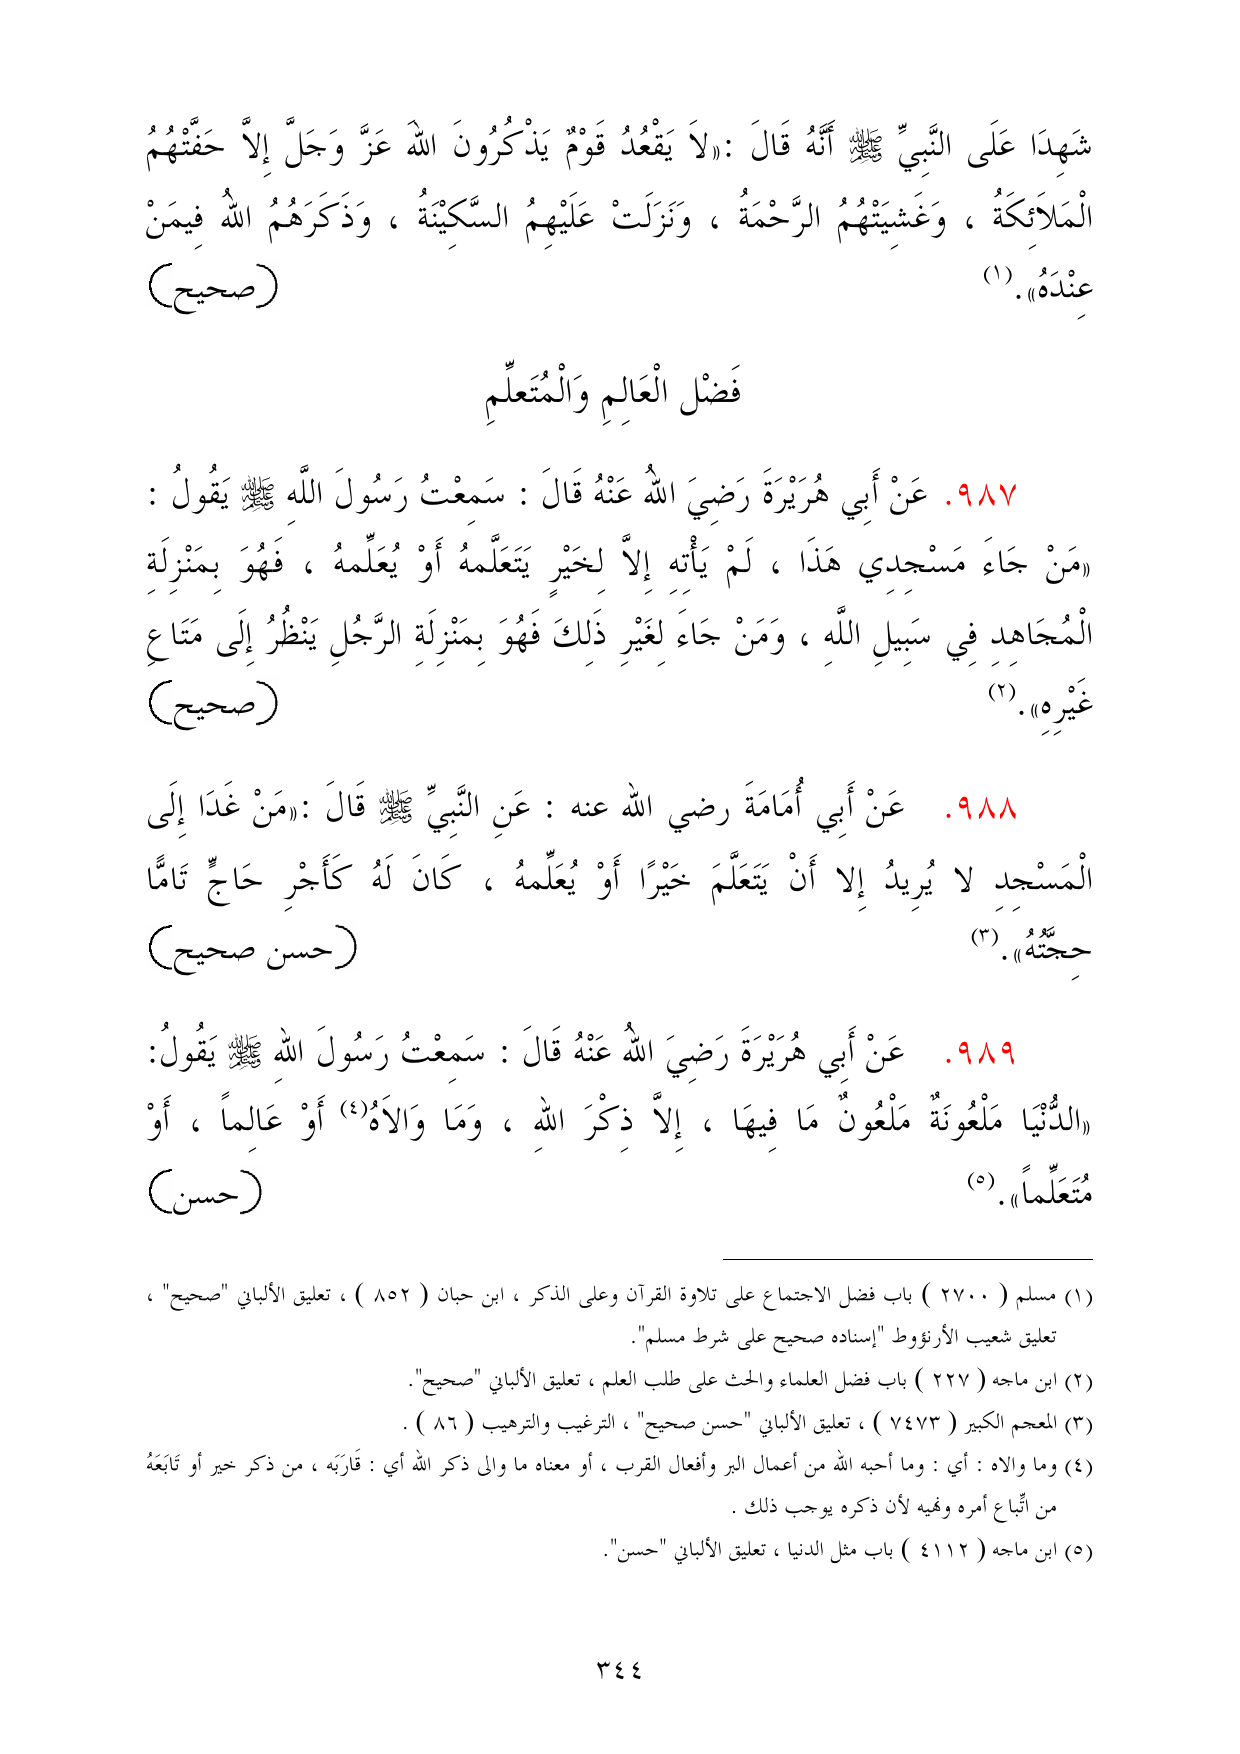 شَهِدَا عَلَى النَّبِيِّ ﷺ أَنَّهُ قَالَ :«لاَ يَقْعُدُ قَوْمٌ يَذْكُرُونَ اللهَ عَزَّ وَجَلَّ إِلاَّ حَفَّتْهُمُ
الْمَلاَئِكَةُ ، وَغَشِيَتْهُمُ الرَّحْمَةُ ، وَنَزَلَتْ عَلَيْهِمُ السَّكِيْنَةُ ، وَذَكَرَهُمُ اللهُ فِيمَنْ
عِنْدَهُ».(١) (صحيح)
فَضْل الْعَالِمِ وَالْمُتَعلِّمِ
٩٨٧. عَنْ أَبِي هُرَيْرَةَ رَضِيَ اللهُ عَنْهُ قَالَ : سَمِعْتُ رَسُولَ اللَّهِ ﷺ يَقُولُ :
«مَنْ جَاءَ مَسْجِدِي هَذَا ، لَمْ يَأْتِهِ إِلاَّ لِخَيْرٍ يَتَعَلَّمهُ أَوْ يُعَلِّمهُ ، فَهُوَ بِمَنْزِلَةِ
الْمُجَاهِدِ فِي سَبِيلِ اللَّهِ ، وَمَنْ جَاءَ لِغَيْرِ ذَلِكَ فَهُوَ بِمَنْزِلَةِ الرَّجُلِ يَنْظُرُ إِلَى مَتَاعِ
غَيْرِهِ».(٢) (صحيح)
٩٨٨. عَنْ أَبِي أُمَامَةَ رضي الله عنه : عَنِ النَّبِيِّ ﷺ قَالَ :«مَنْ غَدَا إِلَى
الْمَسْجِدِ لا يُرِيدُ إِلا أَنْ يَتَعَلَّمَ خَيْرًا أَوْ يُعَلِّمهُ ، كَانَ لَهُ كَأَجْرِ حَاجٍّ تَامًّا
حِجَّتُهُ».(٣) (حسن صحيح)
٩٨٩. عَنْ أَبِي هُرَيْرَةَ رَضِيَ اللهُ عَنْهُ قَالَ : سَمِعْتُ رَسُولَ اللهِ ﷺ يَقُولُ:
«الدُّنْيَا مَلْعُونَةٌ مَلْعُونٌ مَا فِيهَا ، إِلاَّ ذِكْرَ اللهِ ، وَمَا وَالاَهُ(٤) أَوْ عَالِماً ، أَوْ
مُتَعَلِّماً».(٥) (حسن)
(١) مسلم ( ٢٧٠٠ ) باب فضل الاجتماع على تلاوة القرآن وعلى الذكر ، ابن حبان ( ٨٥٢ ) ، تعليق الألباني "صحيح" ،
تعليق شعيب الأرنؤوط "إسناده صحيح على شرط مسلم".
(٢) ابن ماجه ( ٢٢٧ ) باب فضل العلماء والحث على طلب العلم ، تعليق الألباني "صحيح".
(٣) المعجم الكبير ( ٧٤٧٣ ) ، تعليق الألباني "حسن صحيح" ، الترغيب والترهيب ( ٨٦ ) .
(٤) وما والاه : أي : وما أحبه الله من أعمال البر وأفعال القرب ، أو معناه ما والى ذكر الله أي : قَارَبَه ، من ذكر خير أو تَابَعَهُ
من اتِّباع أمره ونهيه لأن ذكره يوجب ذلك .
(٥) ابن ماجه ( ٤١١٢ ) باب مثل الدنيا ، تعليق الألباني "حسن".
٣٤٤